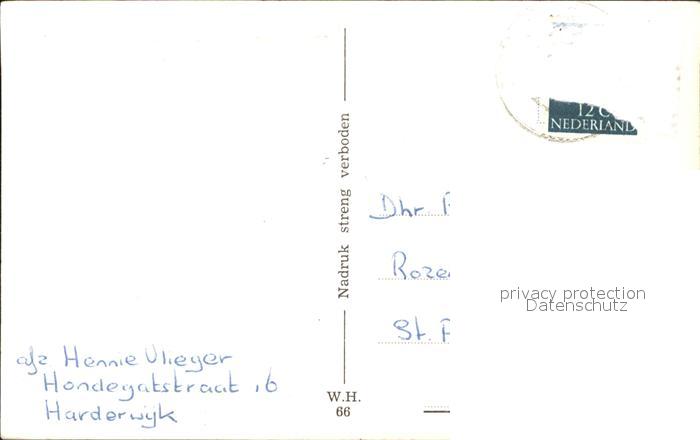 12 C
NEDERLAND
Nadruk streng verboden
Dhr.
St.
privacy protection
Datenschutz
afz Hennie Vlieger
Hondegatstraat 16
Harderwijk
W.H.
66